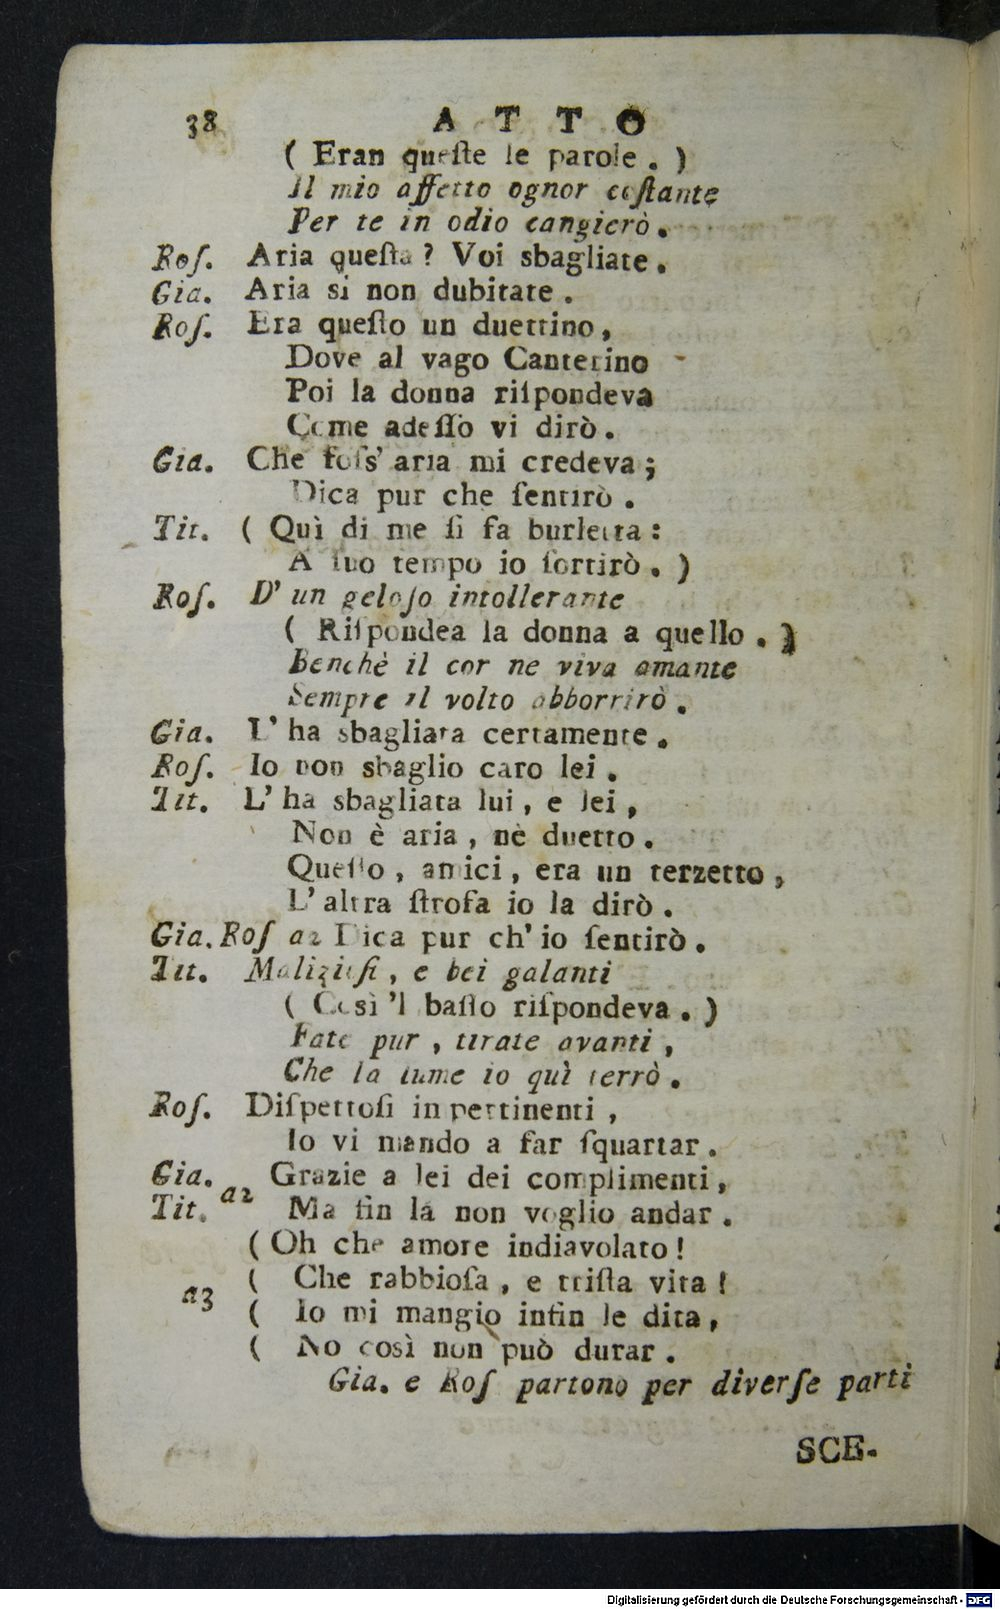 38 ATTO
( Eran queſte le parole . )
Il mio affetto ognor coſtante
Per te in odio cangierò .
Roſ. Aria queſta ? Voi sbagliate .
Gia. Aria si non dubitate .
Roſ. Era queſto un duettino ,
Dove al vago Canterino
Poi la donna riſpondeva
Come adeſſo vi dirò .
Gia. Che foſs' aria mi credeva ;
Dica pur che ſentirò .
Tit. ( Quì di me ſi fa burletta :
A ſuo tempo io ſortirò . )
Roſ. D' un geloſo intollerante
( Riſpondea la donna a quello . )
Benchè il cor ne viva amante
Sempre il volto abborrirò .
Gia. L' ha sbagliata certamente .
Roſ. Io non sbaglio caro lei .
Tit. L' ha sbagliata lui , e lei ,
Non è aria , nè duetto .
Queſto , amici , era un terzetto ,
L' altra ſtrofa io la dirò .
Gia. Roſ a2 Dica pur ch' io ſentirò .
Tit. Malizioſi , e bei galanti
( Così 'l baſſo riſpondeva . )
Fate pur , tirate avanti ,
Che la lume io quì terrò .
Roſ. Diſpettoſi inpertinenti ,
Io vi mando a far ſquartar .
Gia. Grazie a lei dei complimenti ,
a2
Tit. Ma fin là non voglio andar .
( Oh che amore indiavolato !
( Che rabbioſa , e triſta vita !
a3
( Io mi mangio infin le dita ,
( No così non può durar .
Gia. e Roſ partono per diverſe parti
SCE-
Digitalisierung gefördert durch die Deutsche Forschungsgemeinschaft - DFG